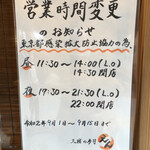 営業時間変更
のお知らせ
東京都感染拡大防止協力の為
昼 11:30～14:00(L.O)
14:30閉店
夜 17:30～21:30(L.O)
22:00閉店
令和2年9月1日～9月15日まで